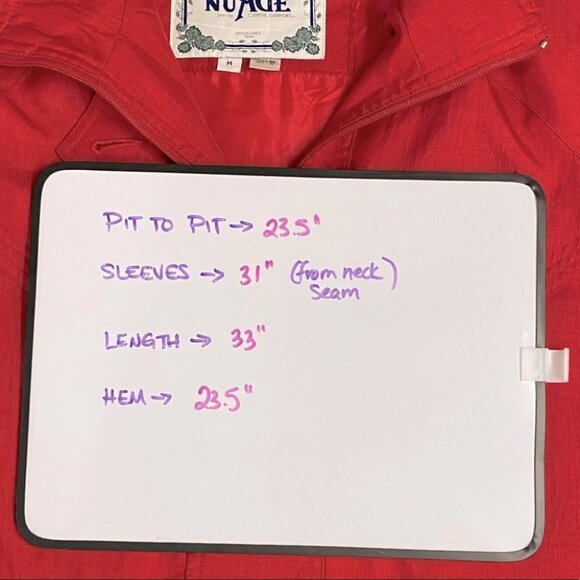 NUAGE
M
PIT TO PIT → 23.5"
SLEEVES → 31" (from neck seam)
LENGTH → 33"
HEM → 23.5"